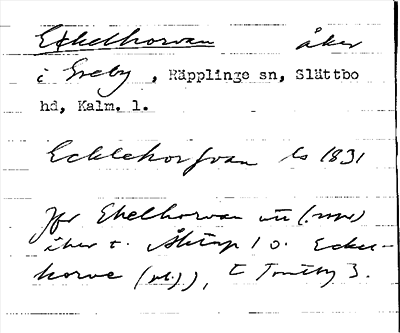 Ekelhorvan åker
i Greby, Räpplinge sn, Slättbo
hd, Kalm. l.
Ecklehorfvan Ls 1831
Jfr Ekelhorvan
åker t. 1 o. Eckel-
horve t 3.